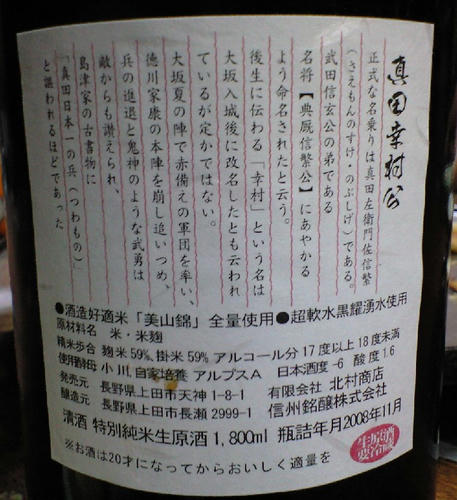 真田幸村公
正式な名乗りは真田左衛門佐信繁
(さえもんのすけ・のぶしげ)である。
武田信玄公の弟である
名将【典厩信繁公】にあやかる
よう命名されたと云う。
後生に伝わる「幸村」という名は
大坂入城後に改名したとも云われ
ているが定かではない。
大坂夏の陣で赤備えの軍団を率い、
徳川家康の本陣を崩し追いつめ、
兵の進退と鬼神のような武勇は
敵からも讃えられ、
島津家の古書物に
「真田日本一の兵(つわもの)」
と謳われるほどであった
●酒造好適米「美山錦」全量使用●超軟水黒耀湧水使用
原材料名 米・米麹
精米歩合 麹米59%、掛米59% アルコール分17度以上18度未満
使用酵母 小川、自家培養 アルプスA 日本酒度-6 酸度1.6
発売元 長野県上田市天神1-8-1 有限会社 北村商店
醸造元 長野県上田市長瀬2999-1 信州銘醸株式会社
清酒 特別純米生原酒 1,800ml 瓶詰年月2008年11月
生原酒
要冷蔵
※お酒は20才になってからおいしく適量を